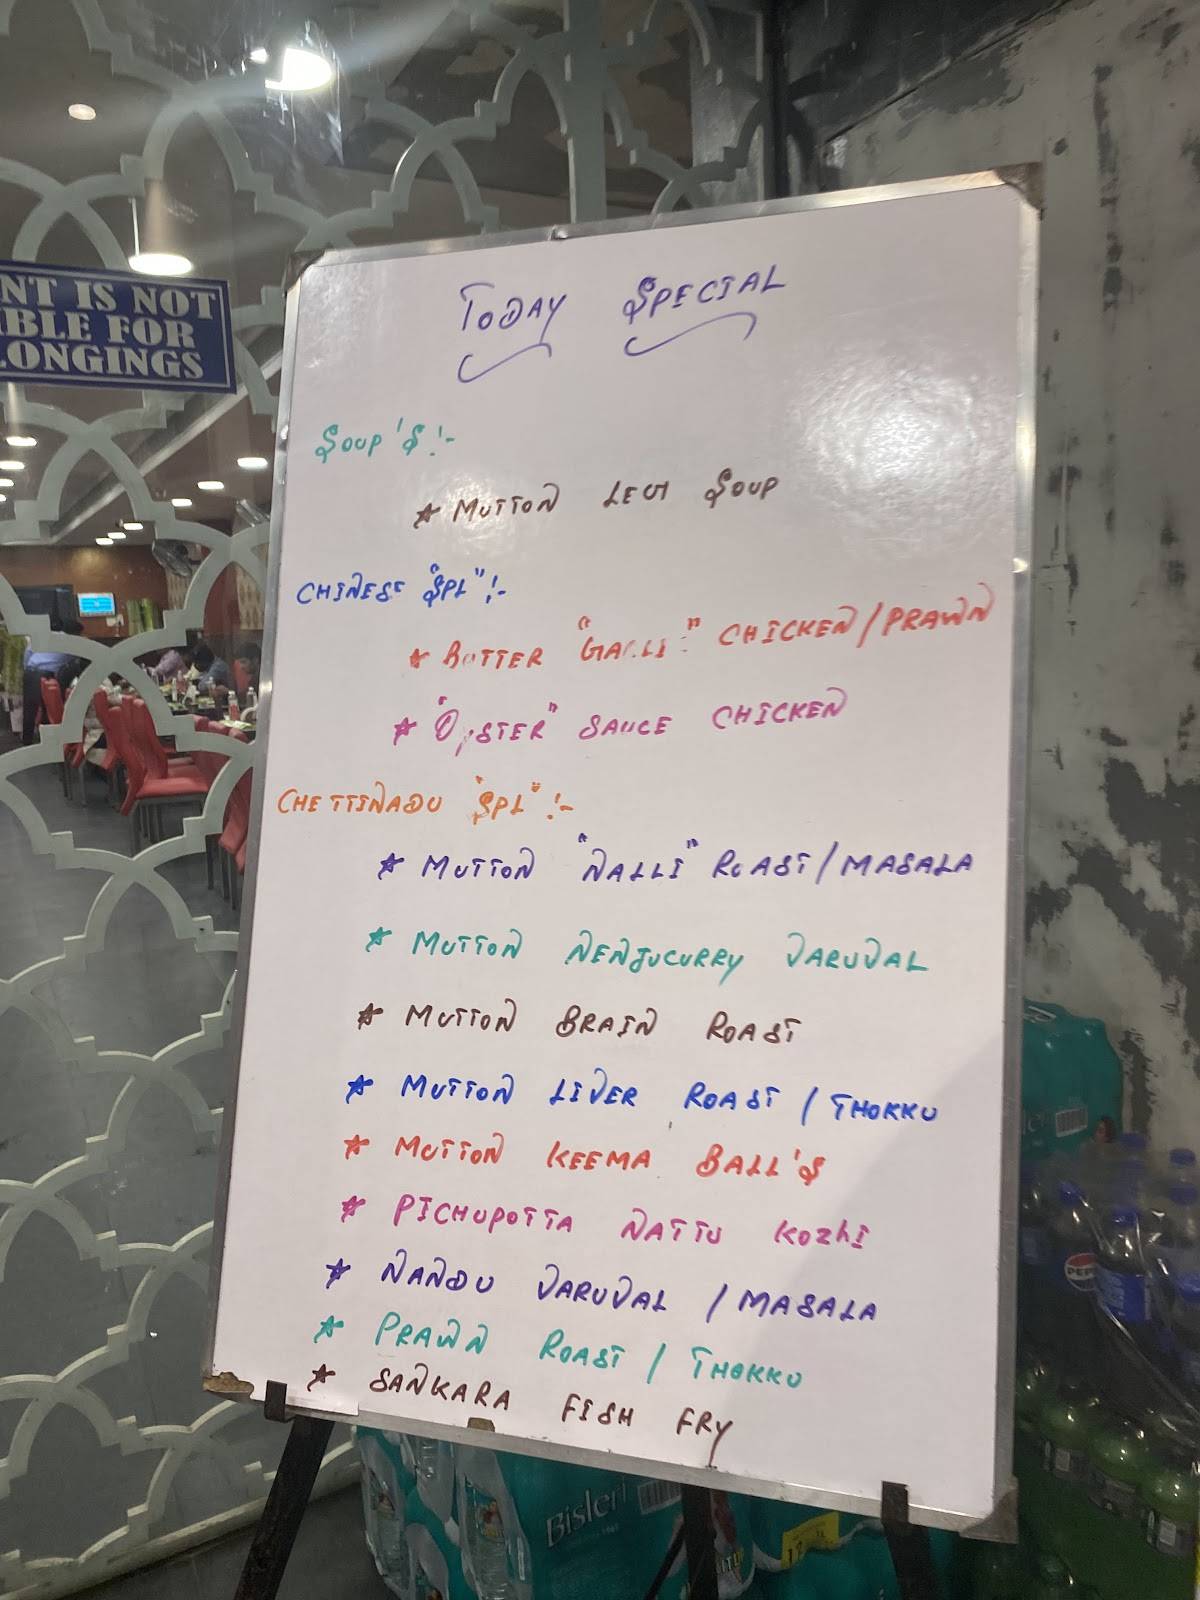 NT IS NOT
IBLE FOR
LONGINGS
TODAY SPECIAL
SOUP'S:-
* MUTTON LEG SOUP
CHINESE "SPL":-
* BUTTER "GARLI" CHICKEN/PRAWN
* "OYSTER" SAUCE CHICKEN
CHETTINADU "SPL":-
* MUTTON "NALLI" ROAST/MASALA
* MUTTON NENJUCURRY VARUVAL
* MUTTON BRAIN ROAST
* MUTTON LIVER ROAST / THOKKU
* MUTTON KEEMA BALL'S
* PICHUPOTTA NATTU KOZHI
* NANDU VARUVAL / MASALA
* PRAWN ROAST / THOKKU
* SANKARA FISH FRY
PEPSI
Bisleri